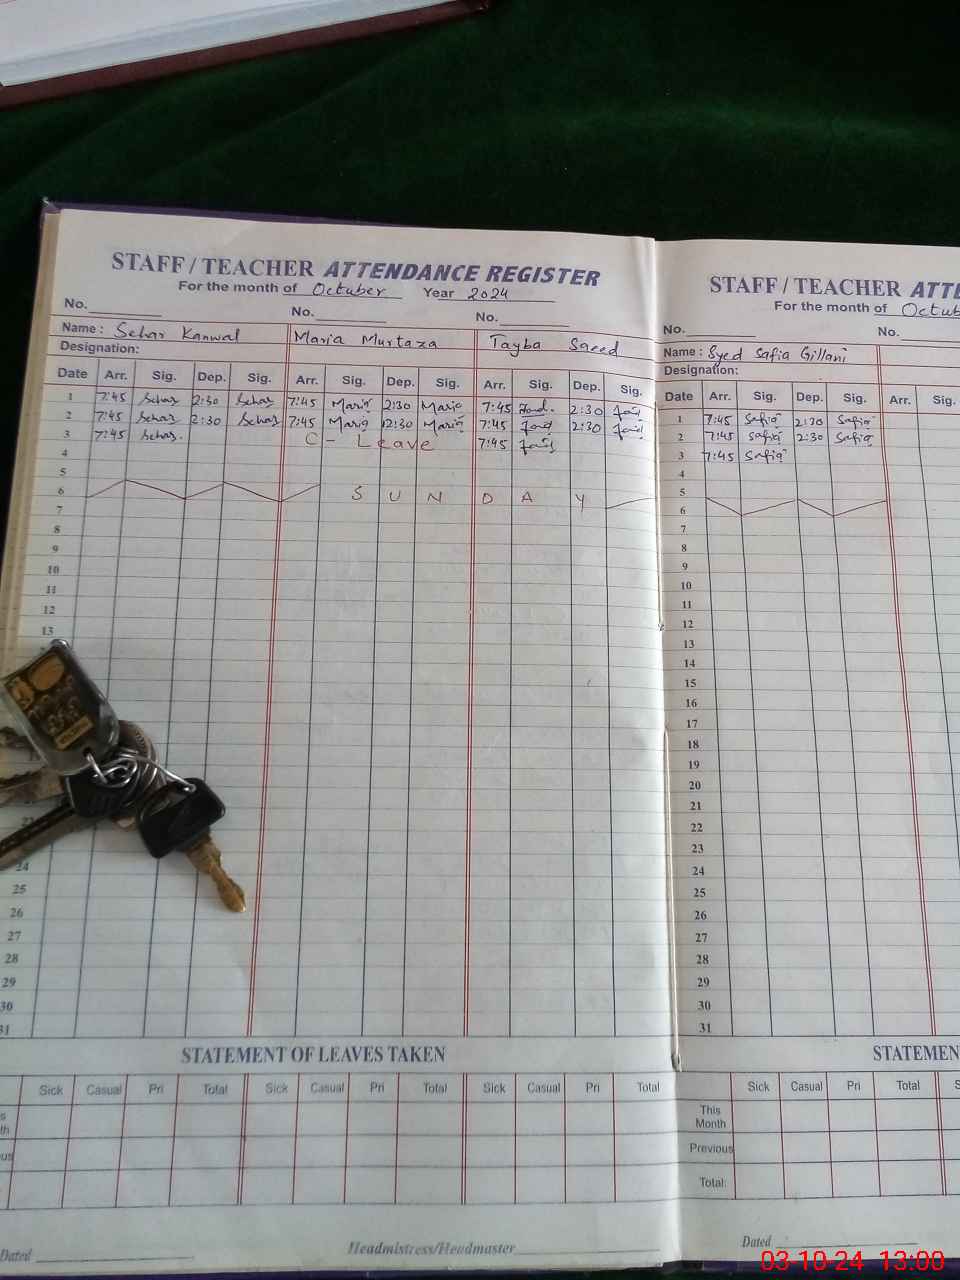 STAFF / TEACHER ATTENDANCE REGISTER
For the month of Octuber Year 2024
No. No. No.
Name : Sehar Kanwal Maria Murtaza Tayba Saeed
Designation:
Date Arr. Sig. Dep. Sig. Arr. Sig. Dep. Sig. Arr. Sig. Dep. Sig.
1 7:45 Sehar 2:30 Sehar 7:45 Maria 2:30 Maria 7:45 2:30
2 7:45 Sehar 2:30 Sehar 7:45 Maria 2:30 Maria 7:45 2:30
3 7:45 Sehar. C - Leave 7:45
4
5
6 S U N D A Y
7
8
9
10
11
12
13
22
24
25
26
27
28
29
30
31
STATEMENT OF LEAVES TAKEN
Sick Casual Pri Total Sick Casual Pri Total Sick Casual Pri Total
Dated Headmistress/Headmaster
STAFF / TEACHER ATTE
For the month of Octub
No. No.
Name : Syed Safia Gillani
Designation:
Date Arr. Sig. Dep. Sig. Arr. Sig.
1 7:45 Safia 2:30 Safia
2 7:45 Safia 2:30 Safia
3 7:45 Safia
4
5
6
7
8
9
10
11
12
13
14
15
16
17
18
19
20
21
22
23
24
25
26
27
28
29
30
31
STATEMEN
Sick Casual Pri Total S
This
Month
Previous
Total:
Dated
03-10-24 13:00